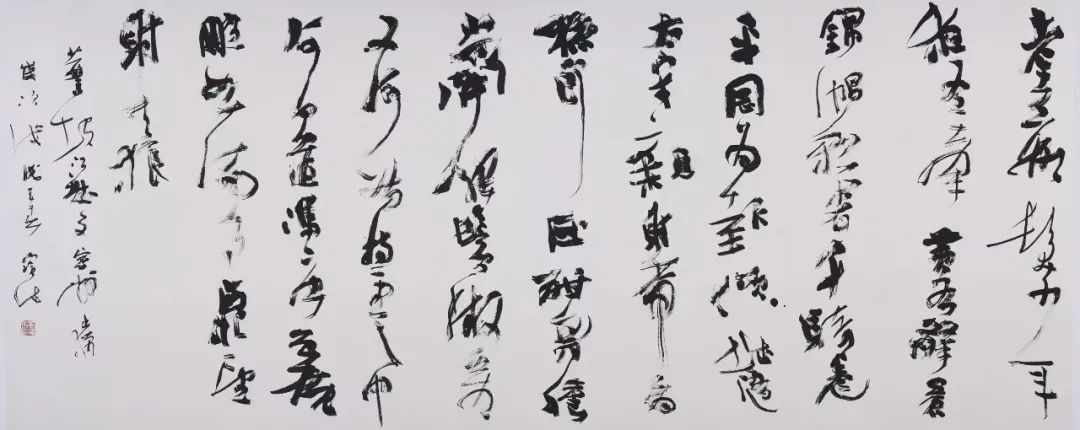 老夫聊發少年
狂左牽黄右擎蒼
錦帽貂裘千騎卷
平岡為報傾城隨
太守親射虎看
孫郎酒酣胸膽
尚開張鬢微霜
又何妨持節雲中
何日遣馮唐會挽
雕弓如滿月西北望
射天狼
蘇軾江城子密州出獵
歲次戊戌之春